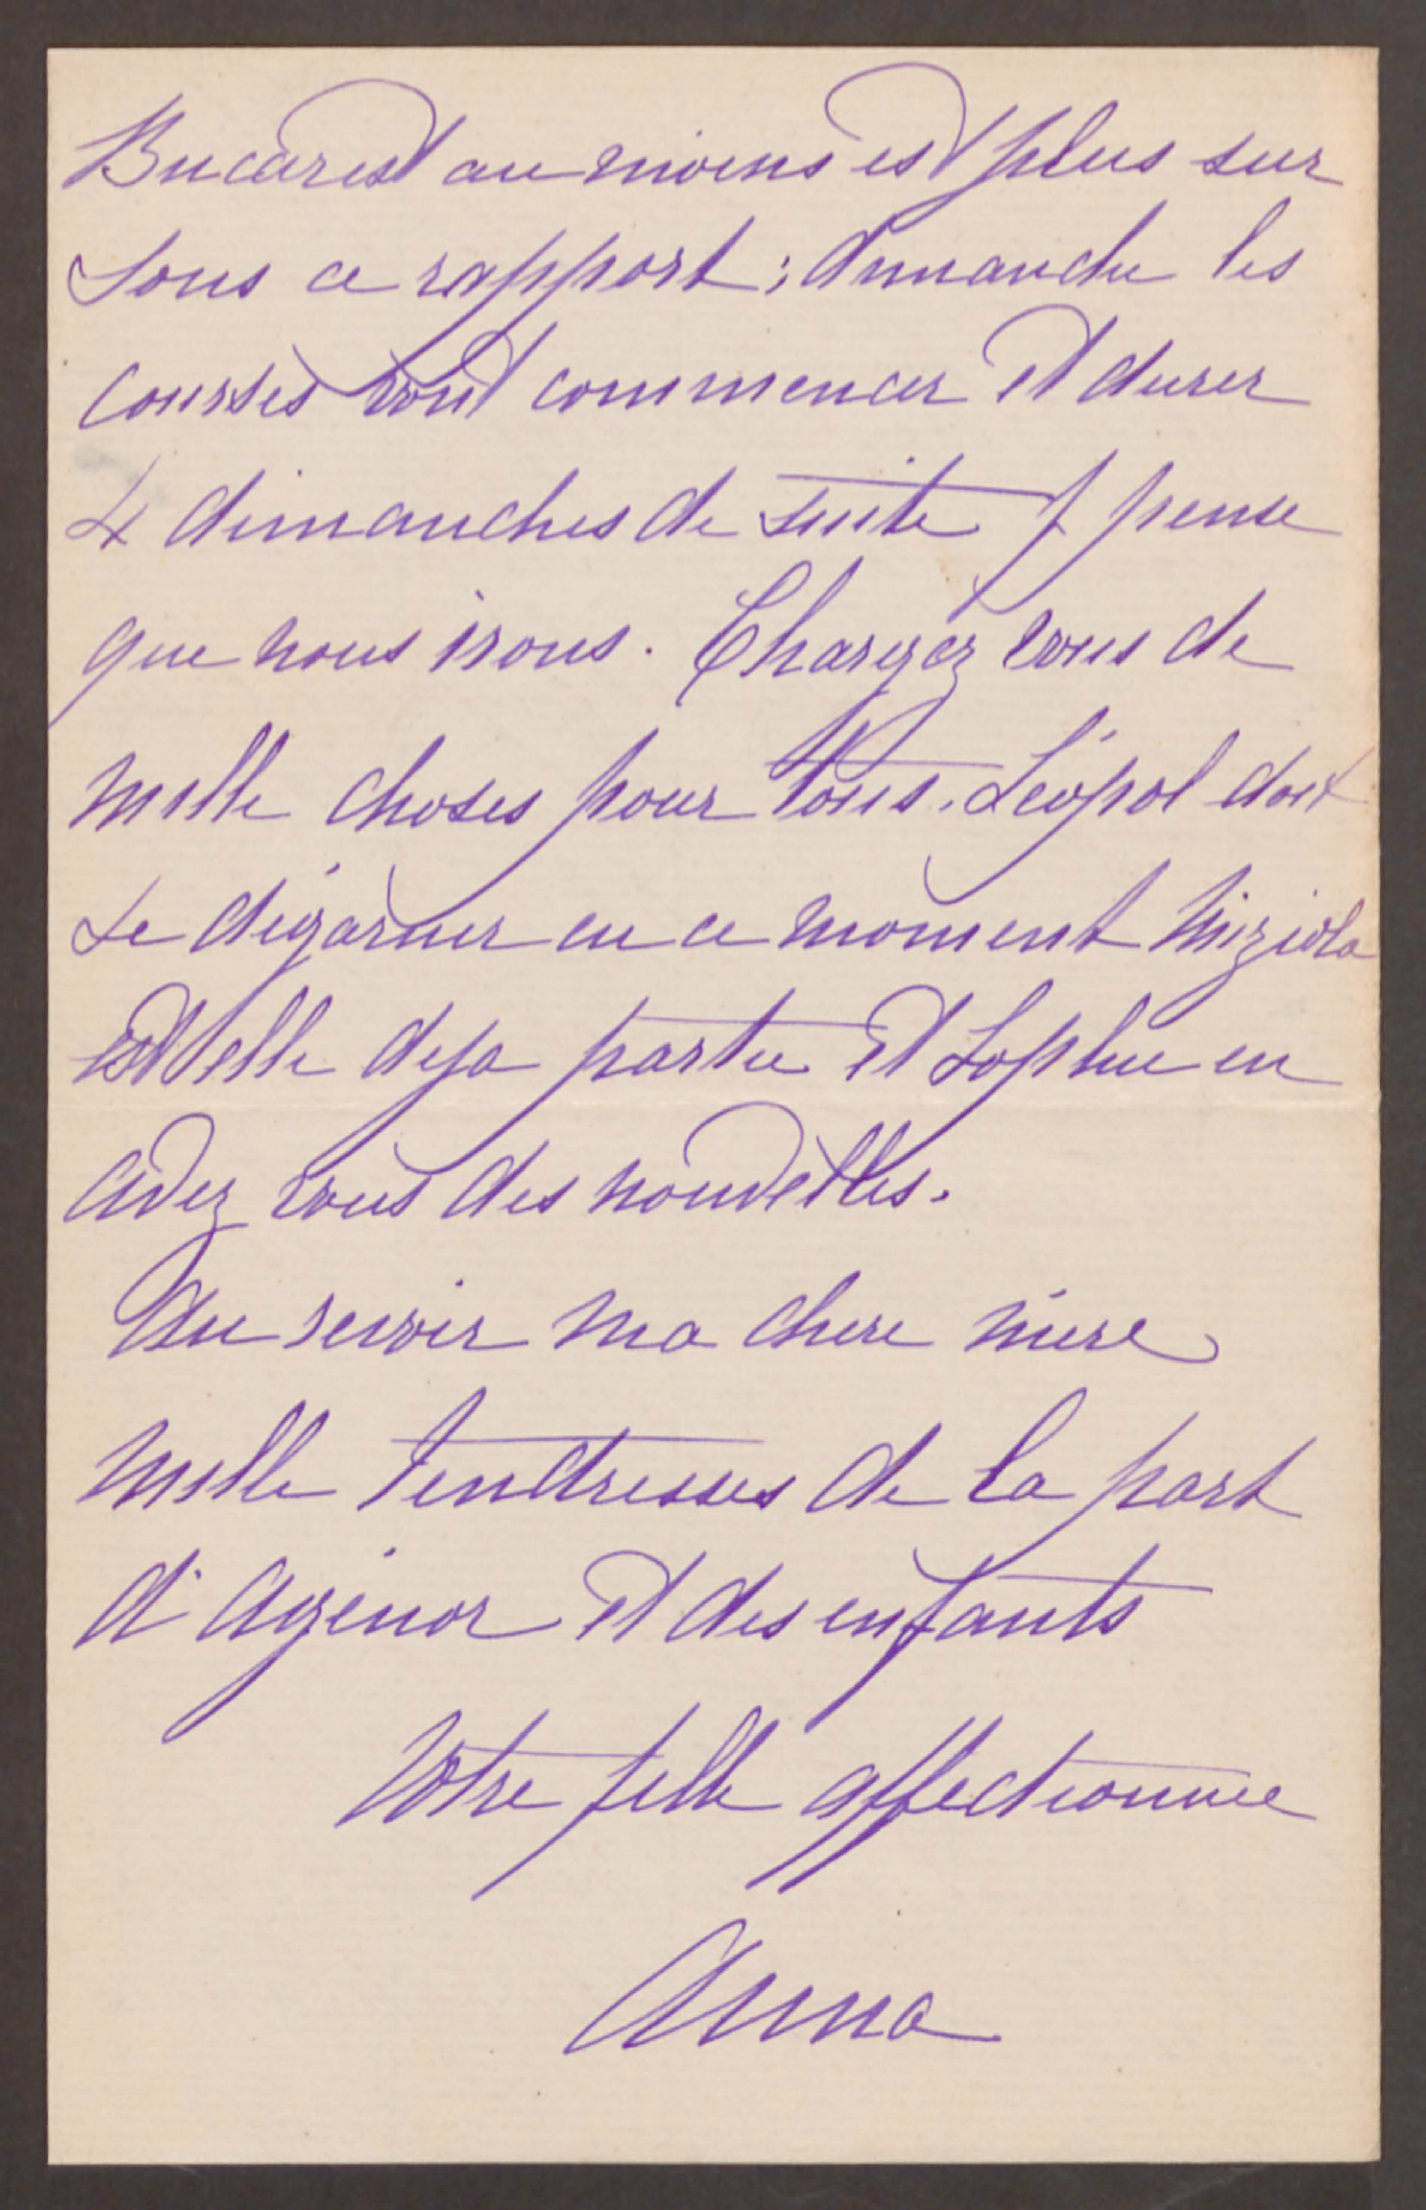 Bucarest au moins est plus sur
sous ce rapport; dimanche les
courses vont commencer et durer
4 dimanches de suite je pense
que nous irons. Chargez vous de
mille choses pour tous. Léopol doit
se dégarnir en ce moment
est elle deja partie et Sophie en
avez vous des nouvelles.
Au revoir ma chere mère
mille tendresses de la part
d'Agénor et des enfants
Votre fille affectionnée
Anna